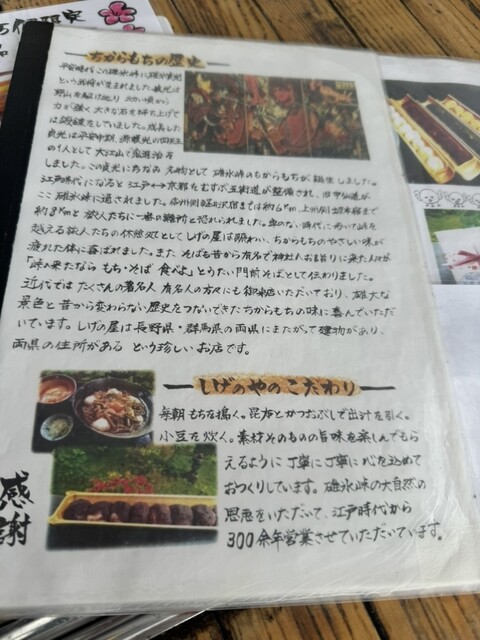 ちからもちの歴史
平安時代 この碓氷峠に碓井貞光
という武将が生まれました。貞光は
野山を駆け廻り 幼い頃から
力が強く 大きな石を持ち上げて
は鍛錬をしていました。成長した
貞光は平安中期、源頼光の四天王
の1人として 大江山で鬼退治を
しました。この貞光にちなみ 名物として 碓氷峠のちからもちが誕生しました。
江戸時代になると 江戸↔京都をむすぶ五街道が整備され、旧中山道が
ここ 碓氷峠に通されました。信州側軽井沢宿までは約
約8Kmと 旅人たちに一番の難所と恐れられました。車のない時代に
越える旅人たちの休憩処として しげの屋は賑わい、ちからもちのやさしい味が
疲れた体に喜ばれました。また そばも昔から有名で神社へお詣りに来た人々が
「峠へ来たなら もち・そば 食べよ」とうたい門前そばとして伝わりました。
近代では たくさんの著名人 有名人の方々にも御来店いただいており、雄大な
景色と 昔から変わらない 歴史をつないできたちからもちの味に喜んでいただ
いています。しげの屋は長野県・群馬県の両県にまたがって建物があり、
両県の住所がある という珍しい お店です。
しげのやのこだわり
毎朝 もちを搗く。昆布とかつおぶしで出汁を引く。
小豆を炊く。素材そのものの旨味を楽しんでもら
えるように 丁寧に丁寧に心を込めて
おつくりしています。碓氷峠の大自然の
恩恵をいただいて、江戸時代から
300余年営業させていただいています。
感謝